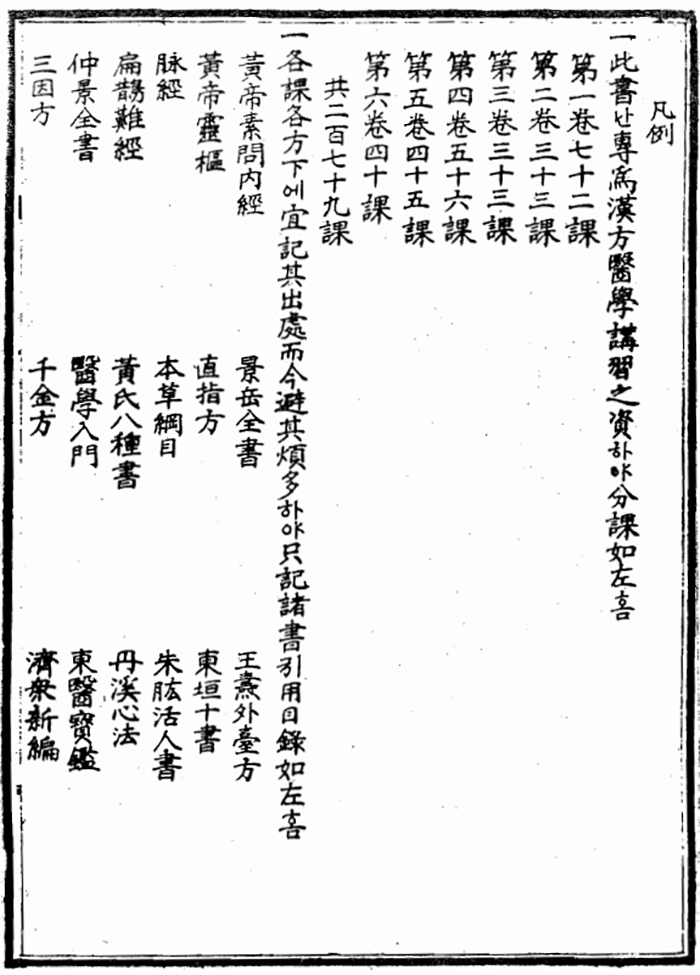 凡例
一此書난專爲漢方醫學講習之資하야分課如左홈
第一卷七十二課
第二卷三十三課
第三卷三十三課
第四卷五十六課
第五卷四十五課
第六卷四十課
共二百七十九課
一各課各方下에宜記其出處而今避其煩多하야只記諸書引用目錄如左홈
黃帝素問內經 景岳全書 王燾外臺方
黃帝靈樞 直指方 東垣十書
脉經 本草綱目 朱肱活人書
扁鵲難經 黃氏八種書 丹溪心法
仲景全書 醫學入門 東醫寶鑑
三因方 千金方 濟衆新編